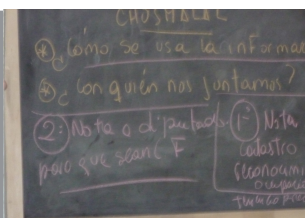 CHOSMALAL
¿Cómo se usa la informa
¿Con quién nos juntamos?
2: Nota a diputado
pero que sean F
1- Nota
Catastro